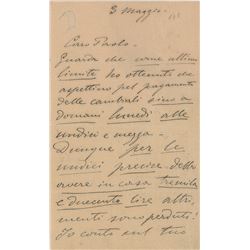 3 Maggio.
Caro Paolo -
Guarda che come ultimo
limite ho ottenuto che
aspettino pel pagamento
delle cambiali sino a
domani lunedì alle
undici e mezza -
Dunque per le
undici precise devo
avere in casa tremila
e duecento lire altri,
menti sono perduto!
Io conto sul tuo